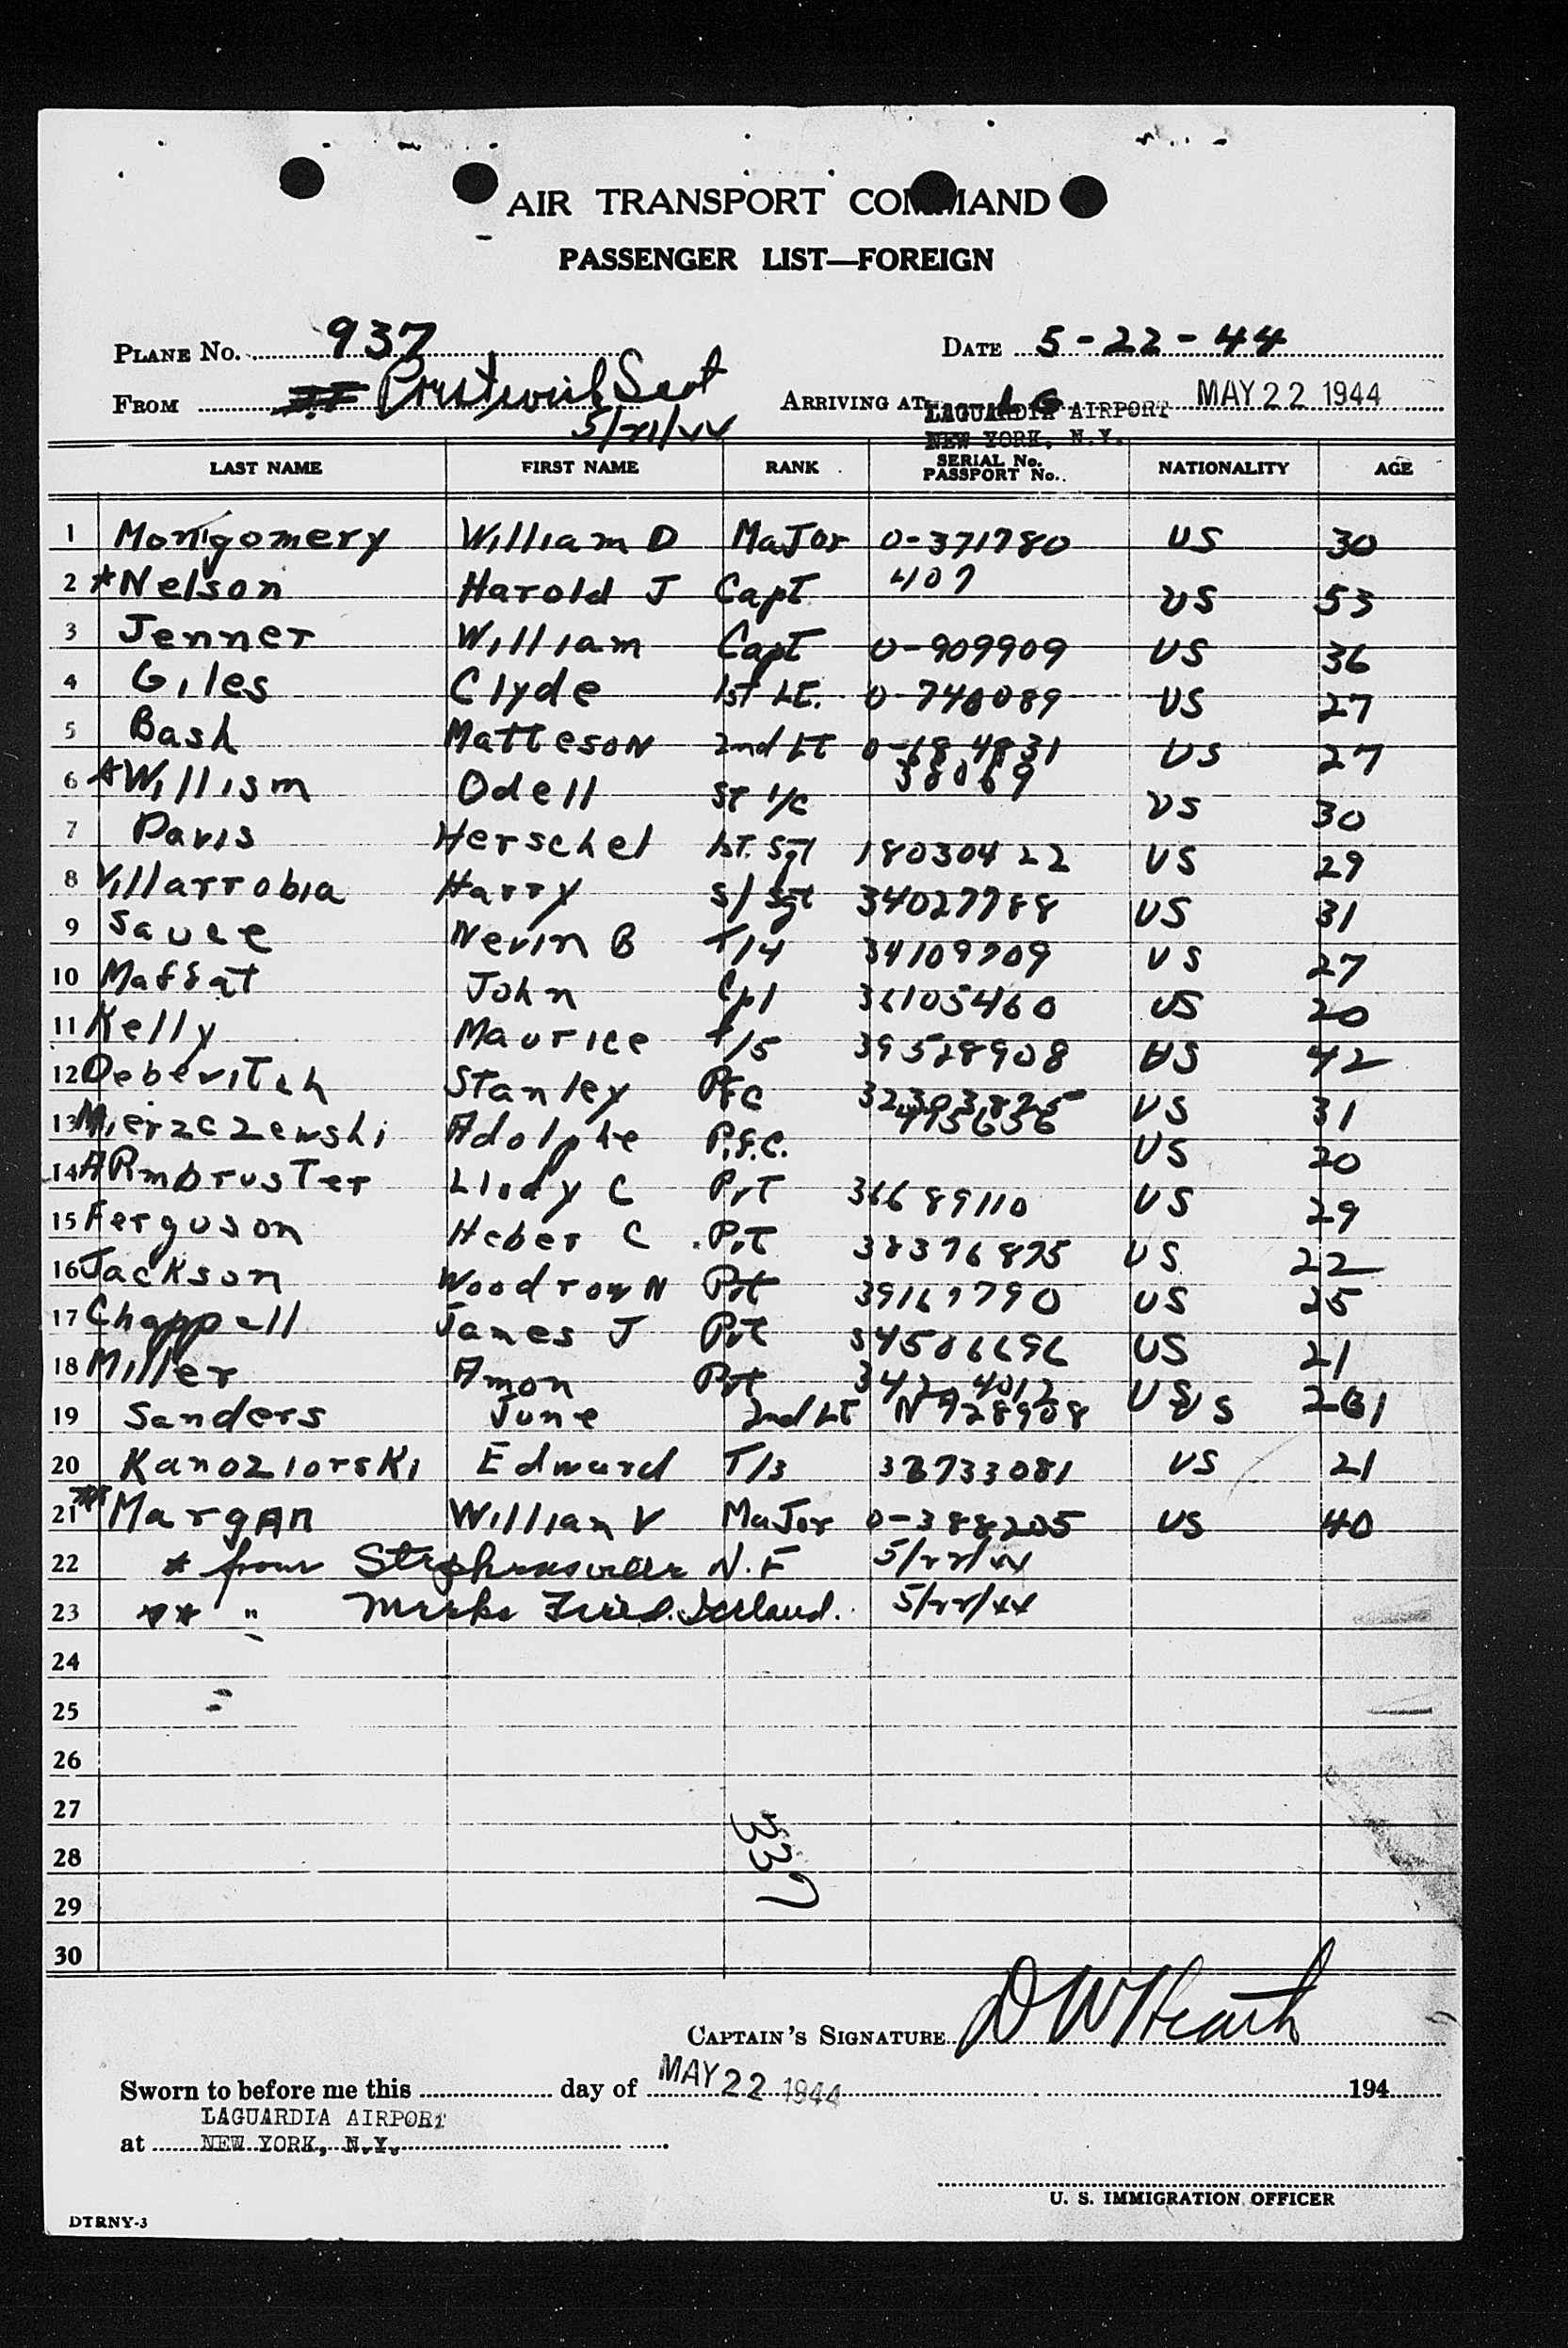 AIR TRANSPORT COMMAND
PASSENGER LIST—FOREIGN
PLANE NO. 937 DATE 5-22-44
FROM Prestwick Scot ARRIVING AT LG LAGUARDIA AIRPORT MAY 22 1944
5/21/44 NEW YORK, N.Y.
LAST NAME FIRST NAME RANK SERIAL No. PASSPORT No. NATIONALITY AGE
1 Montgomery William D Major 0-371780 US 30
2 *Nelson Harold J Capt 407 US 53
3 Jenner William Capt 0-909909 US 36
4 Giles Clyde 1st Lt. 0-740089 US 27
5 Bash Matteson 2nd Lt US 27
6 *Willism Odell ST 1/c 38069 US 30
7 Davis Herschel 1st. Sgt 18030422 US 29
8 Villarrobia Harry S/Sgt 34027788 US 31
9 Sauce Nevin B T/4 34109709 US 27
10 Maffat John Cpl 36105460 US 20
11 Kelly Maurice T/5 39528908 US 42
12 Debevitch Stanley Pfc US 31
13 Mierzczewski Adolphe P.f.c. US 20
14 ARmbrusTer Llody C PvT 36689110 US 29
15 Ferguson Heber C PvT 38376875 US 22
16 Jackson Woodrow N Pvt 39167790 US 25
17 Chappell James J Pvt 34506696 US 21
18 Miller Amon Pvt US
19 Sanders June 2nd Lt N728908 US
20 Kanoziorski Edward T/3 US 21
21 ** MargAn William V Major 0-388205 US 40
22 * from Stephensville N.F 5/22/44
23 ** " Meeks Field. Iceland. 5/22/44
24
25
26
27
28
29
30
337
CAPTAIN'S SIGNATURE D W Heath
Sworn to before me this day of MAY 22 1944 194
LAGUARDIA AIRPORT
at NEW YORK, N.Y.
U. S. IMMIGRATION OFFICER
DTRNY-3